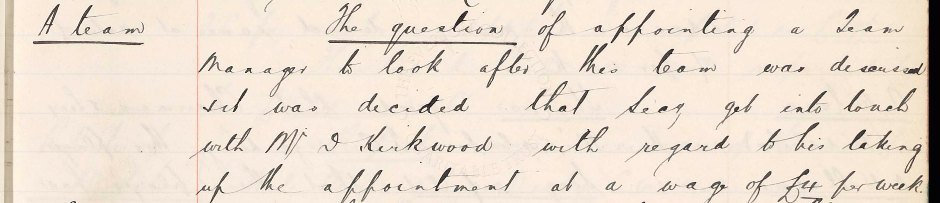 A team The question of appointing a Team
Manager to look after this team was discussed
& it was decided that Secy get into touch
with Mr D Kirkwood with regard to his taking
up the appointment at a wage of £4 per week.